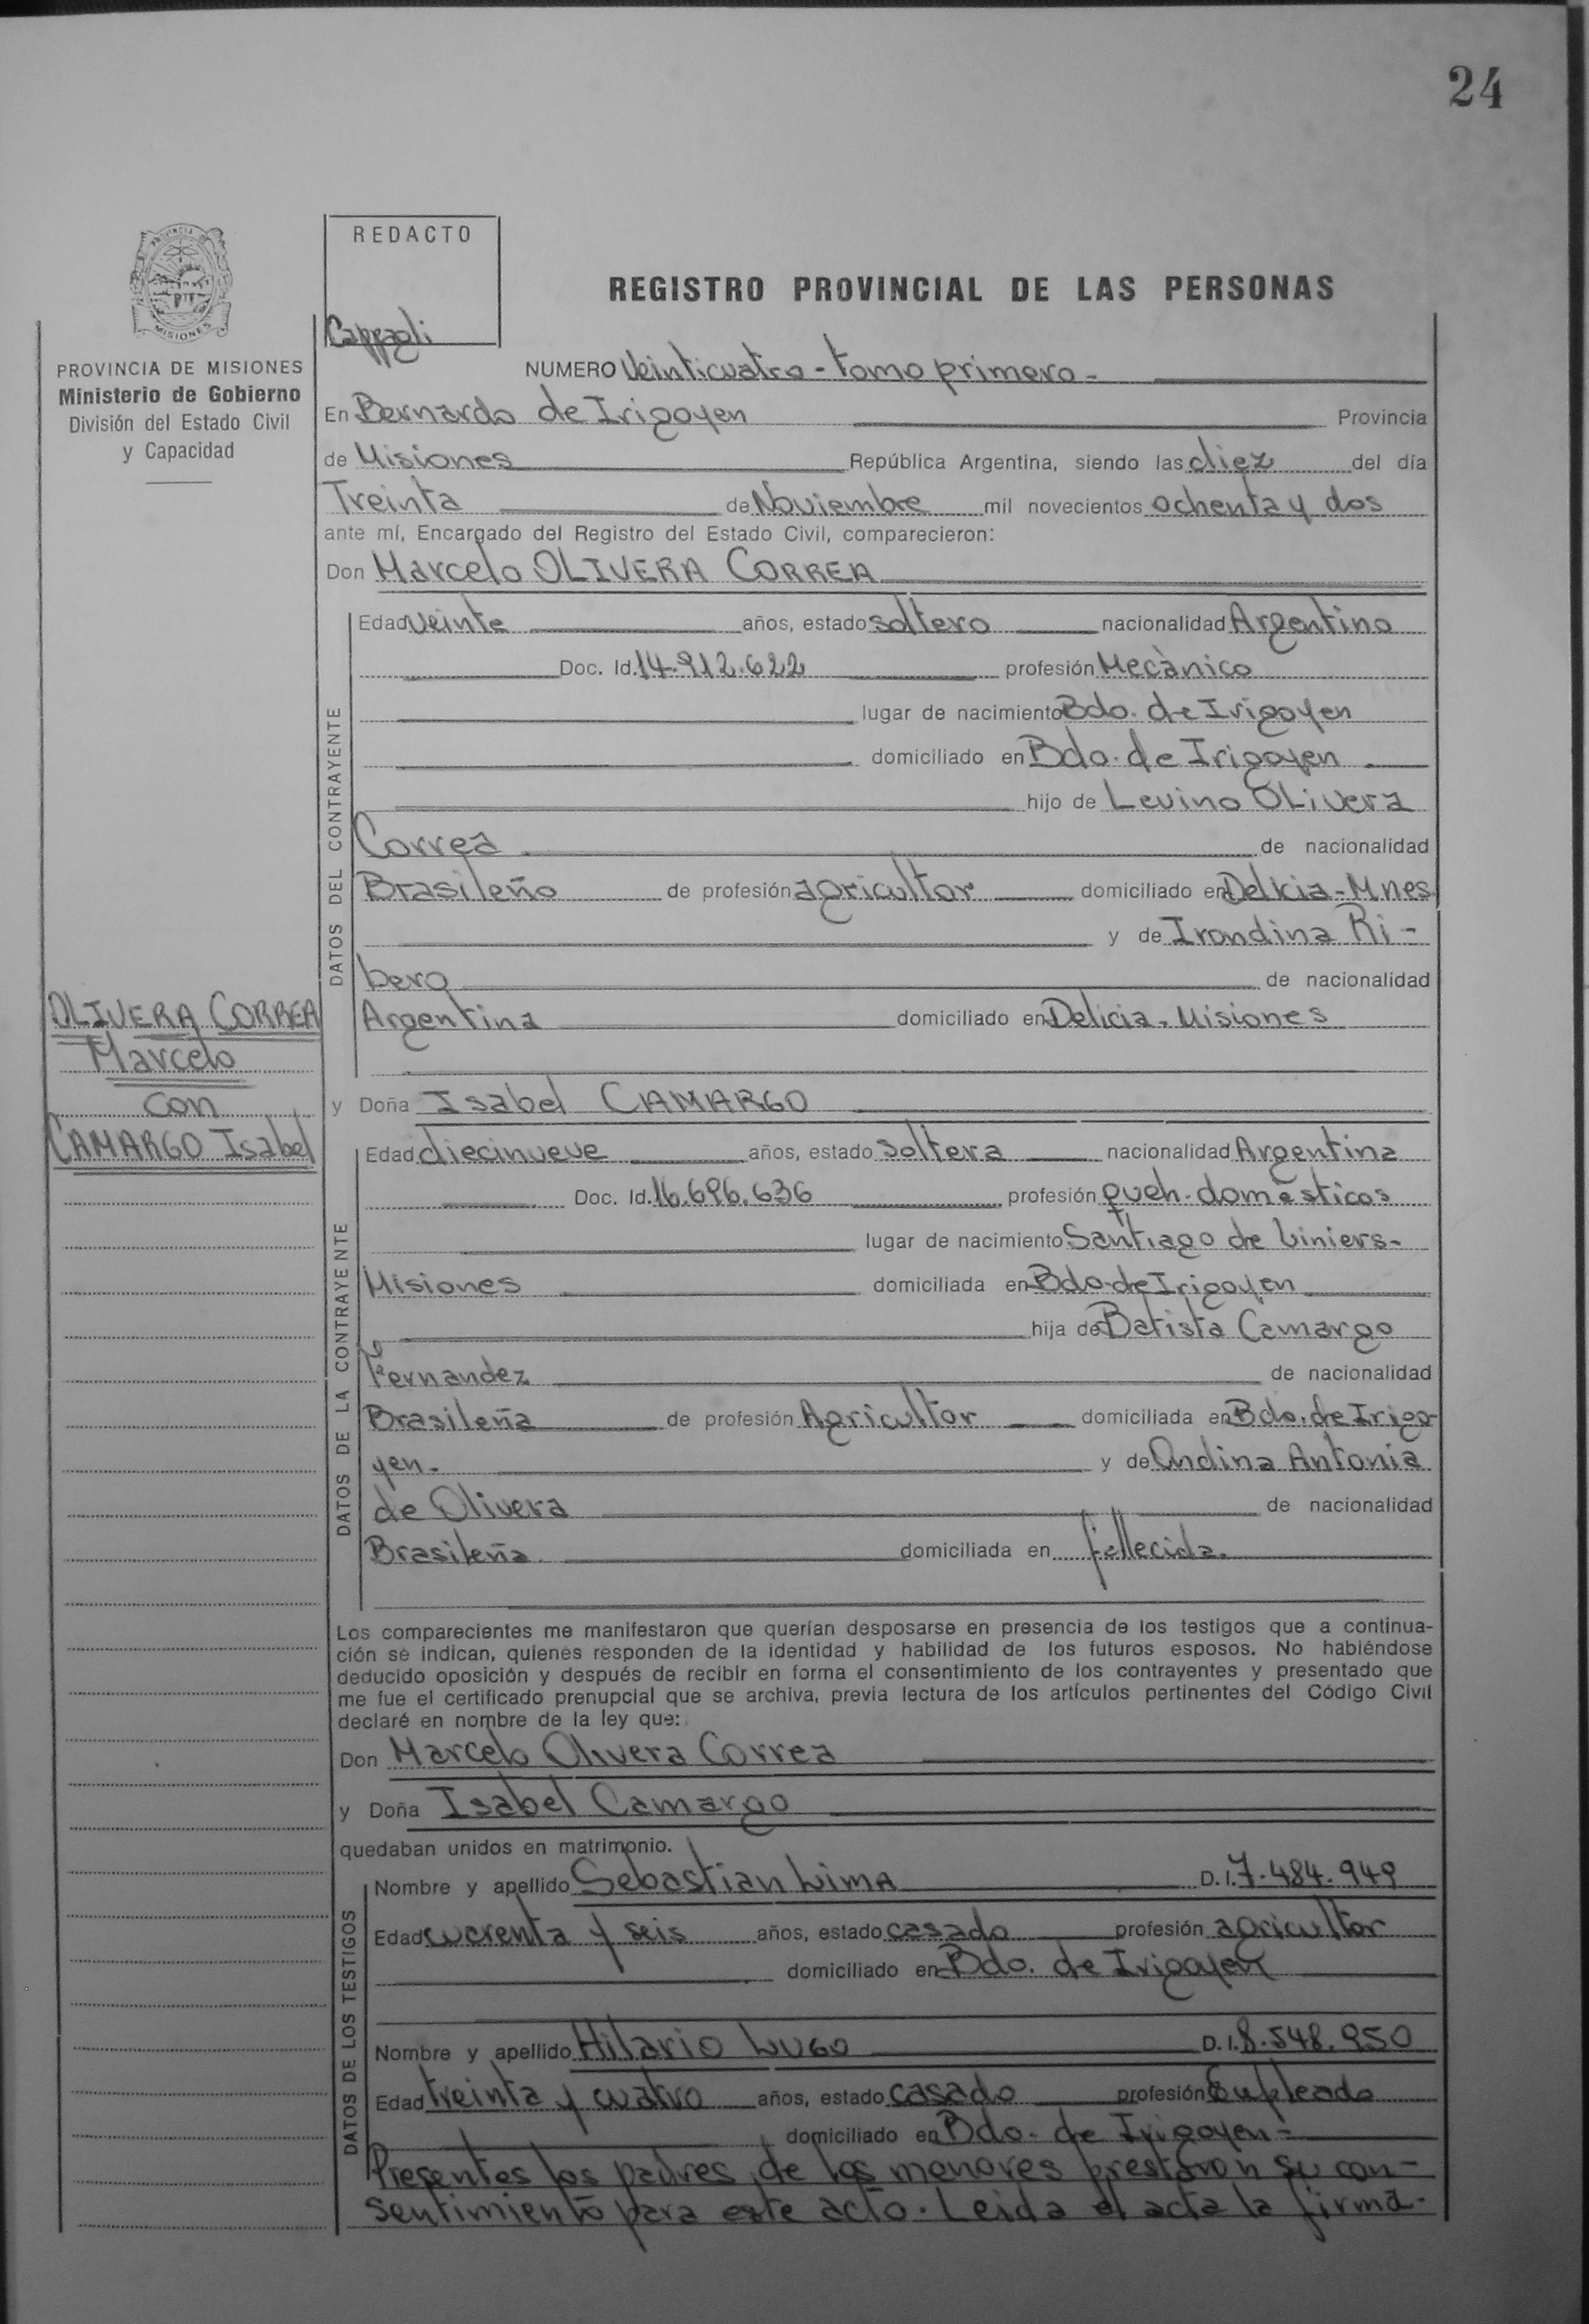 24
REDACTO
REGISTRO PROVINCIAL DE LAS PERSONAS
MISIONES
Cappagli
PROVINCIA DE MISIONES
Ministerio de Gobierno
División del Estado Civil
y Capacidad
NUMERO Veinticuatro - tomo primero -
En Bernardo de Irigoyen Provincia
de Misiones República Argentina, siendo las diez del día
Treinta de Noviembre mil novecientos ochenta y dos
ante mí, Encargado del Registro del Estado Civil, comparecieron:
Don Marcelo OLIVERA CORREA
DATOS DEL CONTRAYENTE
Edad veinte años, estado soltero nacionalidad Argentino
Doc. Id. 14.912.622 profesión Mecànico
lugar de nacimiento Bdo. de Irigoyen
domiciliado en Bdo. de Irigoyen
hijo de Levino Olivera
Correa de nacionalidad
Brasileño de profesión agricultor domiciliado en Delicia - Mnes
y de Irondina Ri-
bero de nacionalidad
Argentina domiciliado en Delicia. Misiones
OLIVERA CORREA
Marcelo
con
CAMARGO Isabel
y Doña Isabel CAMARGO
DATOS DE LA CONTRAYENTE
Edad diecinueve años, estado soltera nacionalidad Argentina
Doc. Id. 16.696.636 profesión queh. domésticos
lugar de nacimiento Santiago de Liniers-
Misiones domiciliada en Bdo. de Irigoyen
hija de Batista Camargo
Fernandez de nacionalidad
Brasileña de profesión Agricultor domiciliada en Bdo. de Irigo
yen. y de Ondina Antonia
de Olivera de nacionalidad
Brasileña domiciliada en fallecida.
Los comparecientes me manifestaron que querían desposarse en presencia de los testigos que a continua-
ción se indican, quienes responden de la identidad y habilidad de los futuros esposos. No habiéndose
deducido oposición y después de recibir en forma el consentimiento de los contrayentes y presentado que
me fue el certificado prenupcial que se archiva, previa lectura de los artículos pertinentes del Código Civil
declaré en nombre de la ley que:
Don Marcelo Olivera Correa
y Doña Isabel Camargo
quedaban unidos en matrimonio.
DATOS DE LOS TESTIGOS
Nombre y apellido Sebastian LIMA D. I. 7.484.949
Edad cuarenta y seis años, estado casado profesión agricultor
domiciliado en Bdo. de Irigoyen
Nombre y apellido Hilario LUGO D. I. 8.548.950
Edad treinta y cuatro años, estado casado profesión Empleado
domiciliado en Bdo. de Irigoyen-
Presentes los padres de los menores prestaron su con-
sentimiento para este acto. Leida el acta la firma-